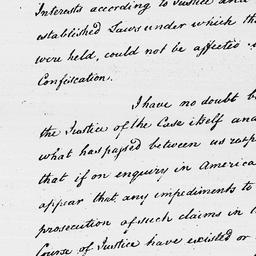 Interests according to Justice and
established Laws under which th
were held, could not be affected
Confiscation.
I have no doubt b
the Justice of the Case itself and
what has passed between us resp
that if on enquiry in America
appear that any impediments to
prosecution of such claims in t
Course of Justice have existed or